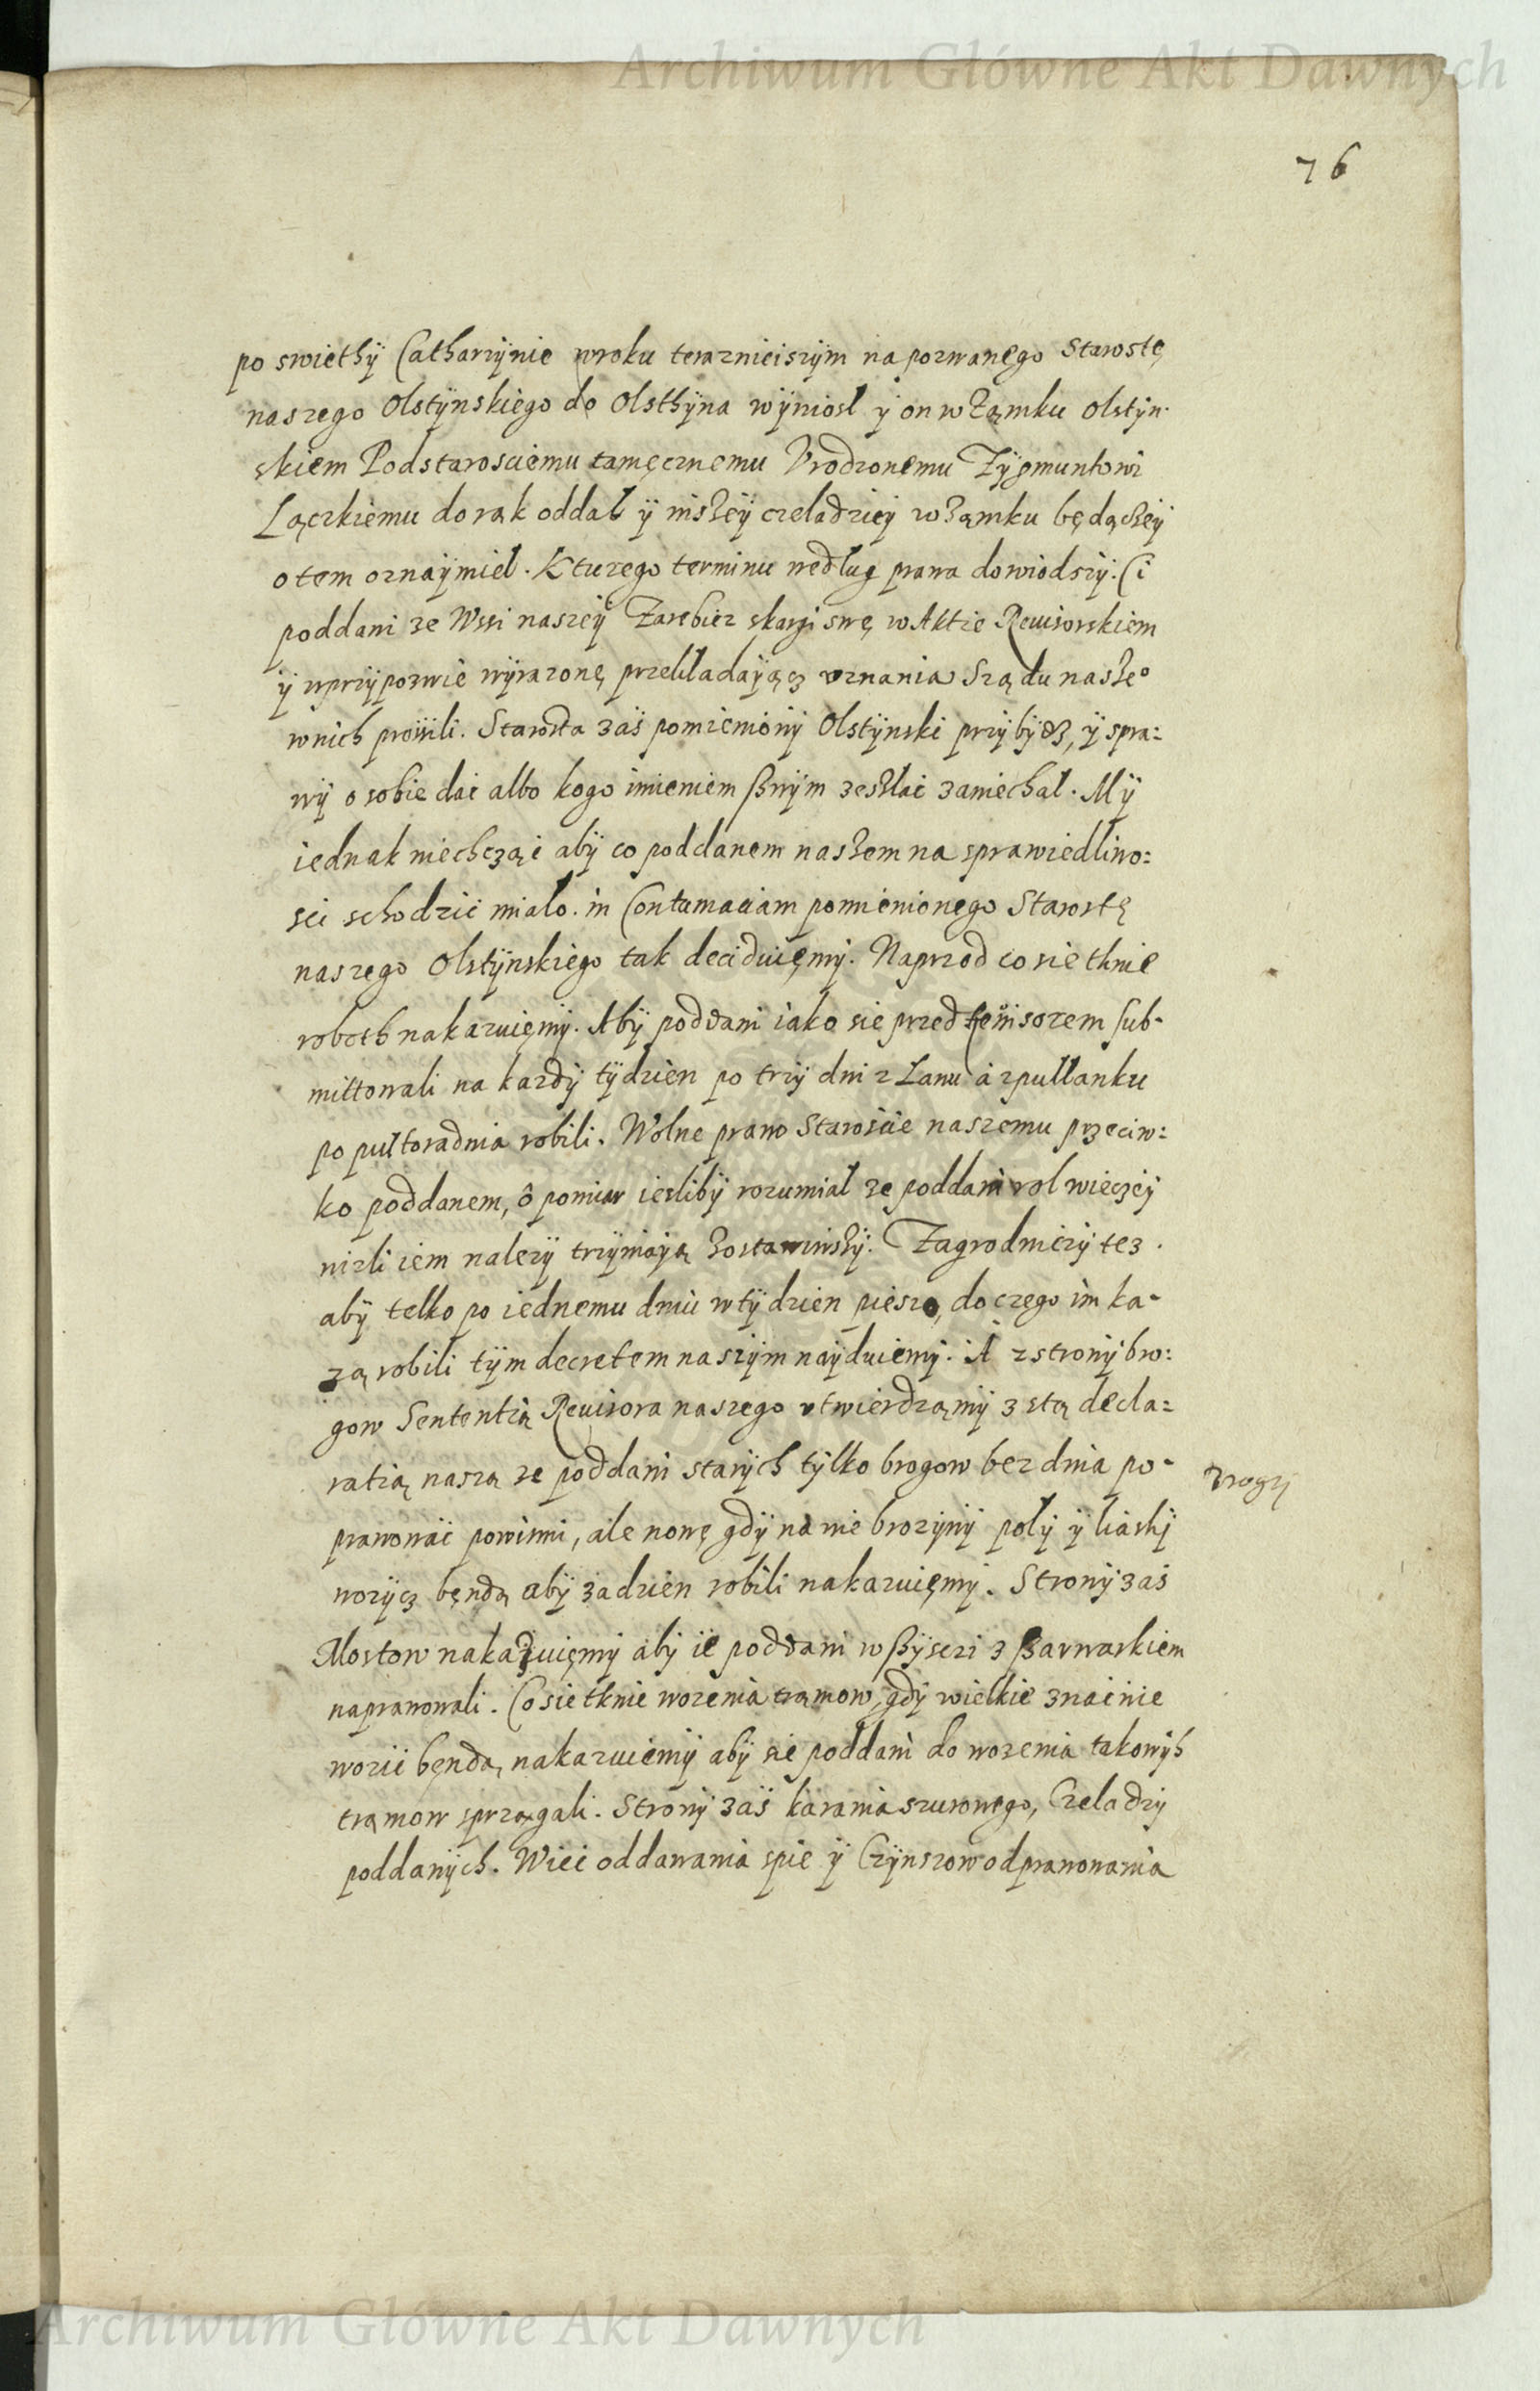 Archiwum Główne Akt Dawnych
76
po swiethÿ Catharzÿnie wroku teraznieiszÿm na pozwanego Starostę
naszego Olstÿnskiego do Olsthÿna wÿniosł ÿ on w Ząmku Olstÿn-
skiem Podstarosciemu tamęcznemu Vrodzonemu Zÿgmuntowi
Lączkiemu do rąk oddał ÿ inszeÿ czeladziej w Ząmku będączeÿ
o tem oznaÿmieł. Kturego terminu według prawa dowiodszÿ. Ci
poddani ze Wssi naszeÿ Zarebicz skargi swę w Aktie Reuisorskiem
ÿ w przÿpozwie wÿrazonę przekładaÿącz vznania Sządu nasze°
w nich prosili. Starosta zas pomienionÿ Olstÿnski przÿbÿdz, ÿ spra=
wÿ o sobie dac albo kogo imieniem swÿm zeszłac zaniechał. Mÿ
iednak niechcząc abÿ co poddanem naszem na sprawiedliwo=
sci schodzic miało. in Contumaciam pomienionego Starostę
naszego Olstÿnskiego tak deciduięmÿ. Naprzod co sie tknie
roboth nakazuięmÿ. Abÿ poddani iako sie przed Reuisorem sub-
mittowali na kazdÿ tÿdzien po trzÿ dni z Lanu a z pullanku
po pułtoradnia robili. Wolne prawo Staroscie naszemu przeciw=
ko poddanem, o pomiar iesliby rozumiał ze poddani rol wieczej
nizli iem nalezÿ trzÿmaÿą zostawiwszÿ. Zagrodniczÿ tez
abÿ telko po iednemu dniu w tÿdzien pieszo, do czego im ka-
zą robili tÿm decretem naszÿm naÿduiemÿ. A z stronÿ bro=
gow Sententią Reuisora naszego vtwierdzamÿ z stą decla=
ratią naszą ze poddani starÿch tÿlko brogow bez dnia po-
prawowac powinni, ale nowę gdÿ na nie brozÿnÿ połÿ ÿ liaskÿ
wozÿcz bęndą abÿ za dzien robili nakazuięmÿ. Stronÿ zas
Mostow nakazuięmÿ abÿ ie poddani wszÿsczi z szarwarkiem
naprawowali. Co sie tknie wozenia tramow, gdÿ wielkie znacnie
wozic bęndą, nakazuiemÿ abÿ sie poddani do wozenia takowÿh
tramow sprzągali. Stronÿ zas karania szurowego, Czeladzÿ
poddanÿch. Wiec oddawania spie ÿ Czÿnszow odprawowania
Brogÿ
Archiwum Główne Akt Dawnych